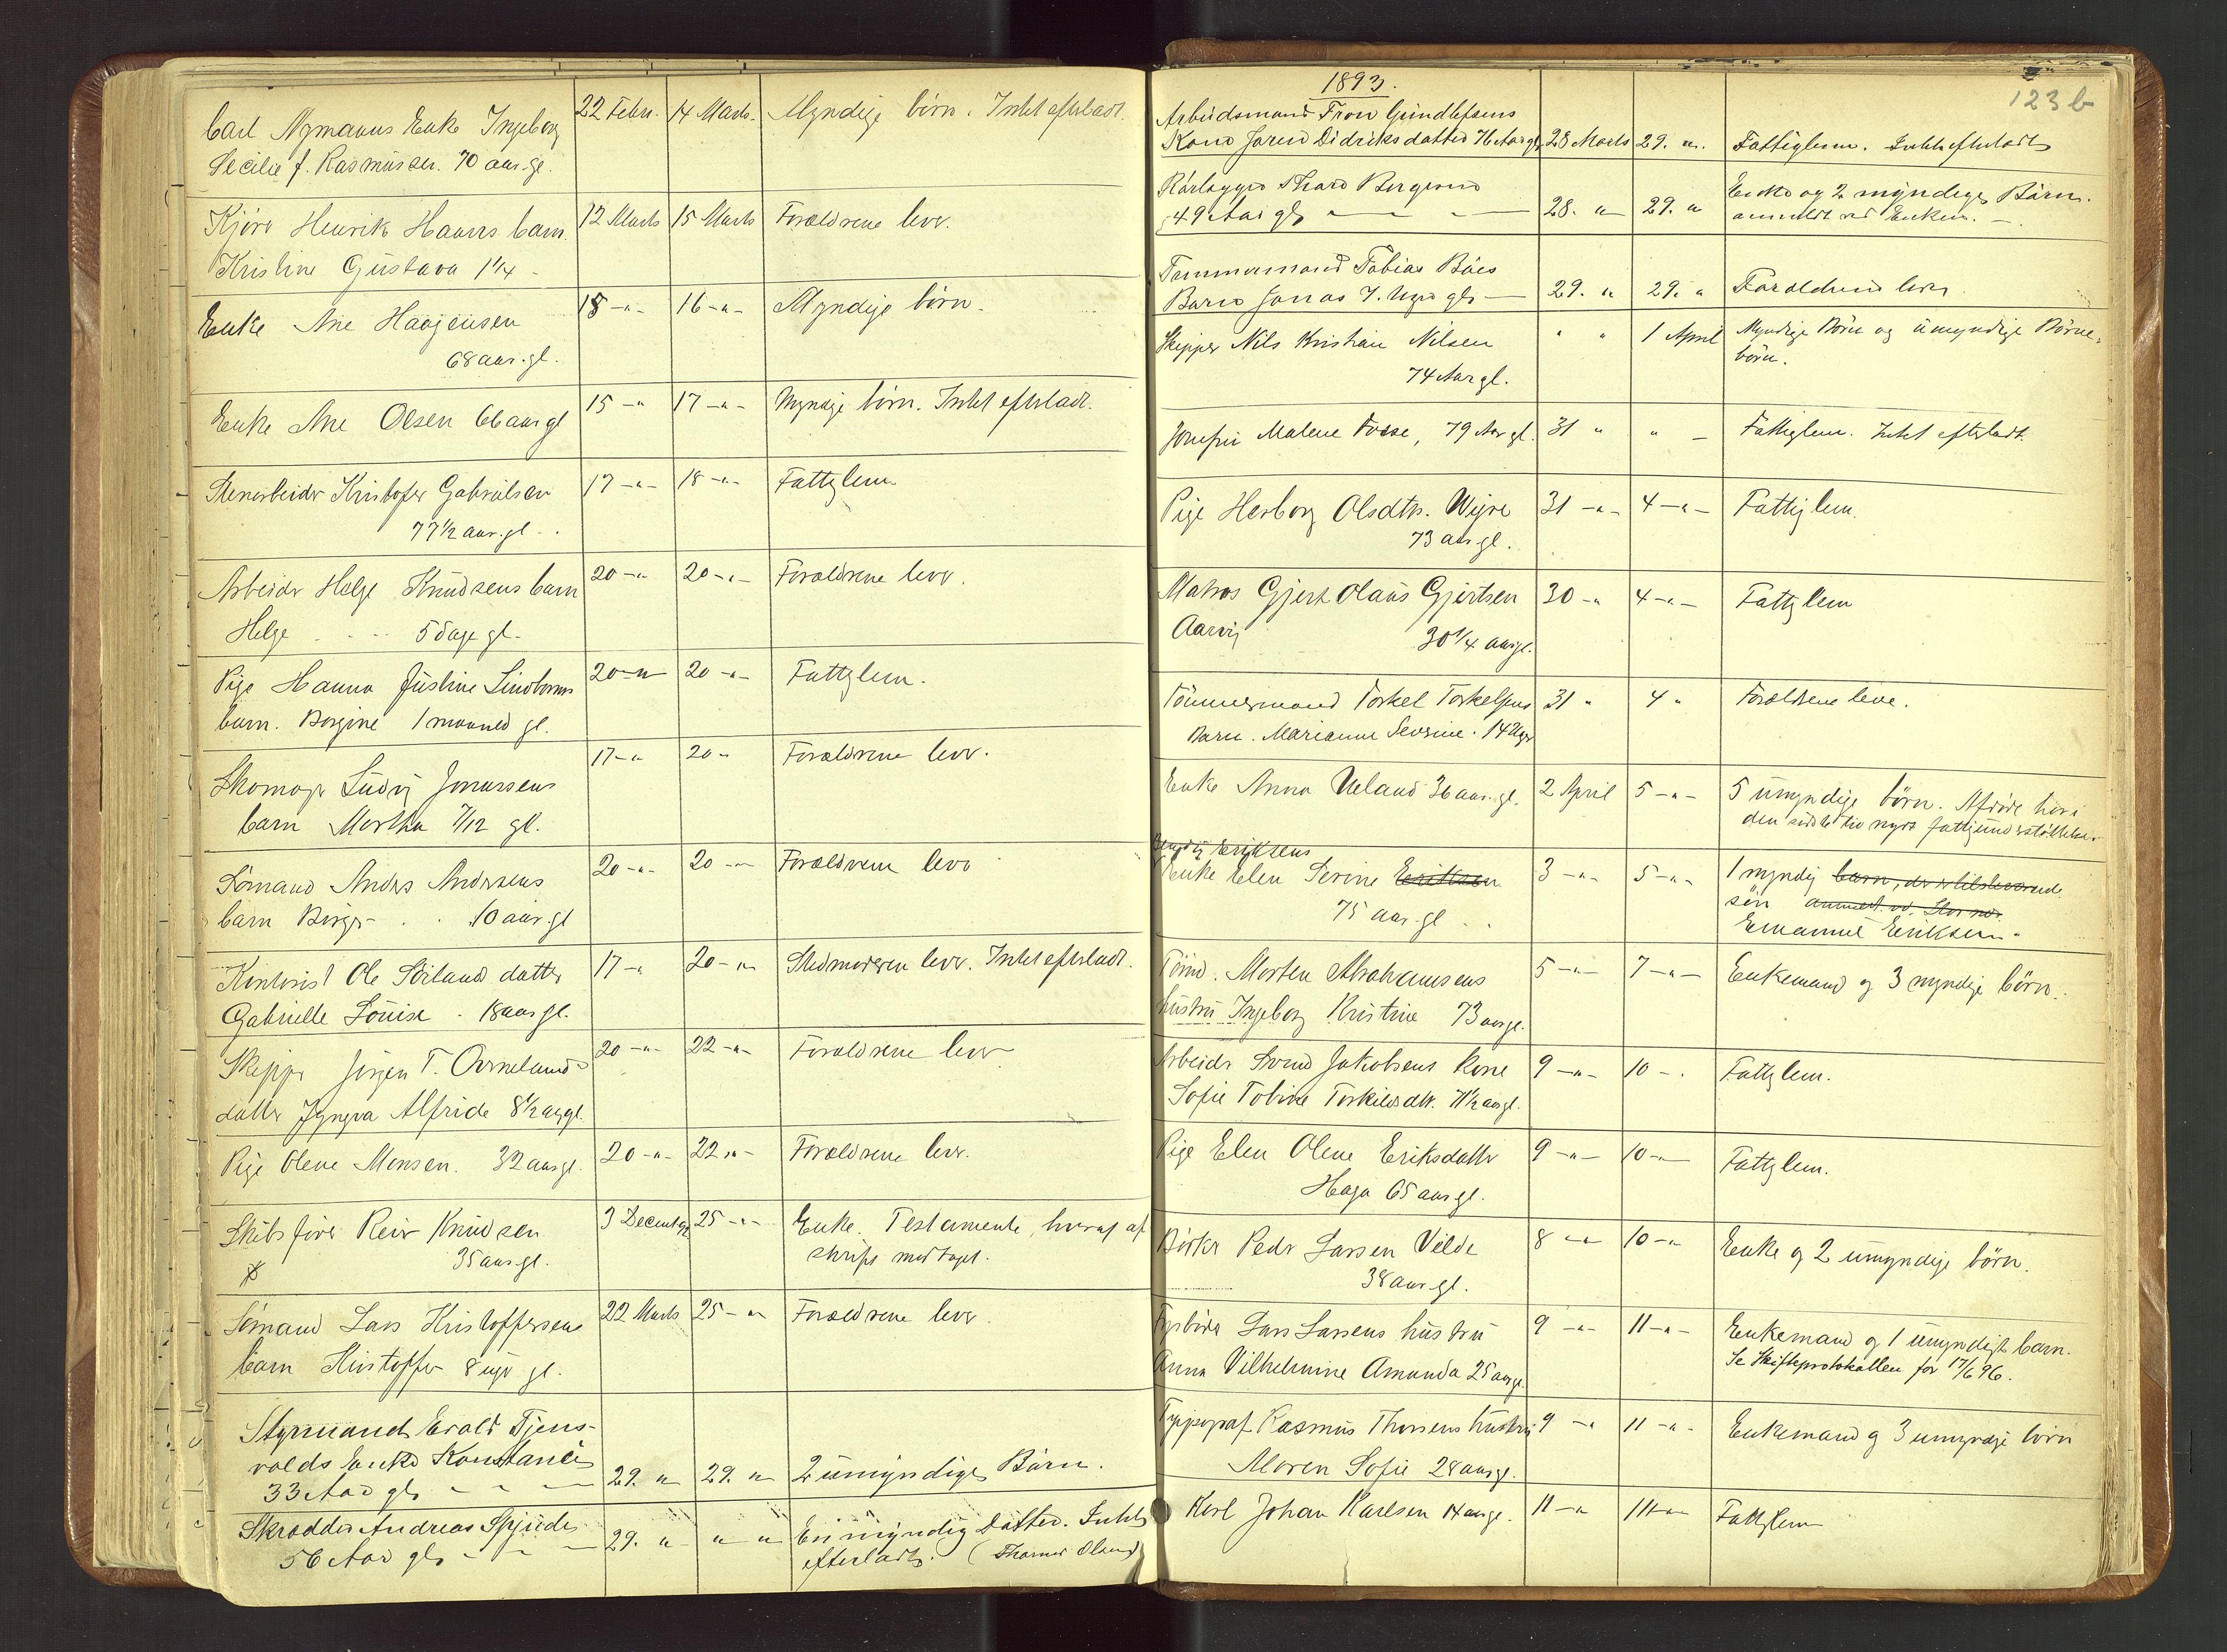 Carl Nymanns Enke Ingeborg 22 Febru. 14 Marts. Myndige börn. Intet efterladt.
Secilie f. Rasmussen. 70 aar. gl.
Kjörer Henrik Hauers barn 12 Marts 15 Marts Forældrene lever.
Kristine Gustava 1 1/4 -
Enke Ane Haajensen 15 -"- 16 -"- Myndige börn.
68 aar. gl.
Enke Ane Olsen 66 aar gl 15 -" 17 -"- Myndige börn. Intet efterladt.
Stenarbeider Kristofer Gabrielsen 17 -"- 18 -"- Fattiglem
77 1/2 aar. gl
Arbeider Helge Knudsens barn 20 -" 20 -"- Forældrene lever.
Helge 5 dage gl.
Pige Hanna Justine barn 20 -" 20 -"- Fattiglem.
barn. Borgine 1 maaned gl.
Skomager Ludvig Jonassens 17 -" 20 - Forældrene lever.
barn Martha 7/12 gl.
Sömand Anders Andersens 20 -"- 20 -"- Forældrene lever
barn Birger 10 aar. gl
Kontorist Ole Sörlands datter 17 -" 20 -"- Stedmoderen lever. Intet efterladt.
Gabrielle Louise - 18 aar gl.
Skipper Jörgen T. 20 -"- 22 -"- Forældrene lever
datter Alfride 8 1/2 aar gl.
Pige Olene Monsen. 32 aar gl. 20 -"- 22 -"- Forældrene lever.
Skibsförer Reier Knudsen 3 Decemb 92 25 -"- Enke. Testamente, hvoraf af
35 aar. gl. skrift modtaget.
Sömand Lars Kristoffersens 22 Marts 25 -"- Forældrene lever.
barn Kristoffer 8 uger gl.
Styrmand Evald Tjens-
volds Enke Konstance
33 Aar gl. 29. " 29. " 2 umyndige Börn.
Skrædder Andreas Spjudes En myndig Datter. Intet
56 Aar gl. 29. " " " efterladt.
1893.
123 b
Arbeidsmand Tron Gundlefsens
Kone Joren Didriksdatter 76 Aar gl. 28 Marts 29. ". Fattiglem. Intet efterladt
Rörlægger Thore Borgersen Enke og 2 myndige Börn.
49 Aar gl. 28. " 29. " anmeldt ved Enken.
Tømmermand Tobias Böes
Barn Jonas 7. Uger gl. 29. " 29. " Forældrene lever.
Skipper Nils Kristian Nilsen " " 1 April Myndige Börn og umyndige Börne-
74 Aar gl. börn.
Jomfru Malene Fosse, 79 Aar gl. 31 " " - Fattiglem. Intet efterladt.
Pige Herborg Olsdtr. Wiyre 31 -"- 4 -"- Fattiglem.
73 aar gl.
Matros Gjert Olaus Gjertsen 30 -" 4 -"- Fattiglem
30 1/4 aar gl.
Tömmermand Torkel Torkelsens 31 " 4 " Forældrene leve.
Barn. Marianne Severine. 14 Uger
Enke Anna Ueland 36 aar. gl. 2 April 5 -"- 5 umyndige börn. Afdöde har i
den sidste tid nydt fattigunderstöttelse.
Eriksens
Enke Elen Serine Eriksen 3 -"- 5 -"- 1 myndig barn, der er tilstedeværende
75 aar. gl sön
Emanuel Eriksen.
Tömd. Morten Abrahamsens 5 -"- 7 -"- Enkemand og 3 myndige börn.
hustru Ingeborg Kristine 73 aar gl.
Arbeider Svend Jakobsens kone 9 -"- 10 - . Fattiglem.
Sofie Tobine Torkildsdtr. 71 1/2 aar gl.
Pige Elen Olene Eriksdatter 9 -"- 10 -"- Fattiglem.
Haga 65 aar gl.
Bödker Peder Larsen Velde 8 -"- 10 -"- Enke og 2 umyndige börn.
38 aar gl.
Fyrböder Lars Larsens hustru 9 -"- 11 -"- Enkemand og 1 umyndigt barn.
Anna Vilhelmine Amanda 25 aar gl. Se Skifteprotokollen for 17/6 96.
Typograf Rasmus Thorsens hustru 9 -" 11 -"- Enkemand og 3 umyndige börn
Maren Sofie 28 aar gl.
Karl Johan Karlsen 14 aar gl. 11 -" 11 -"- Fattiglem